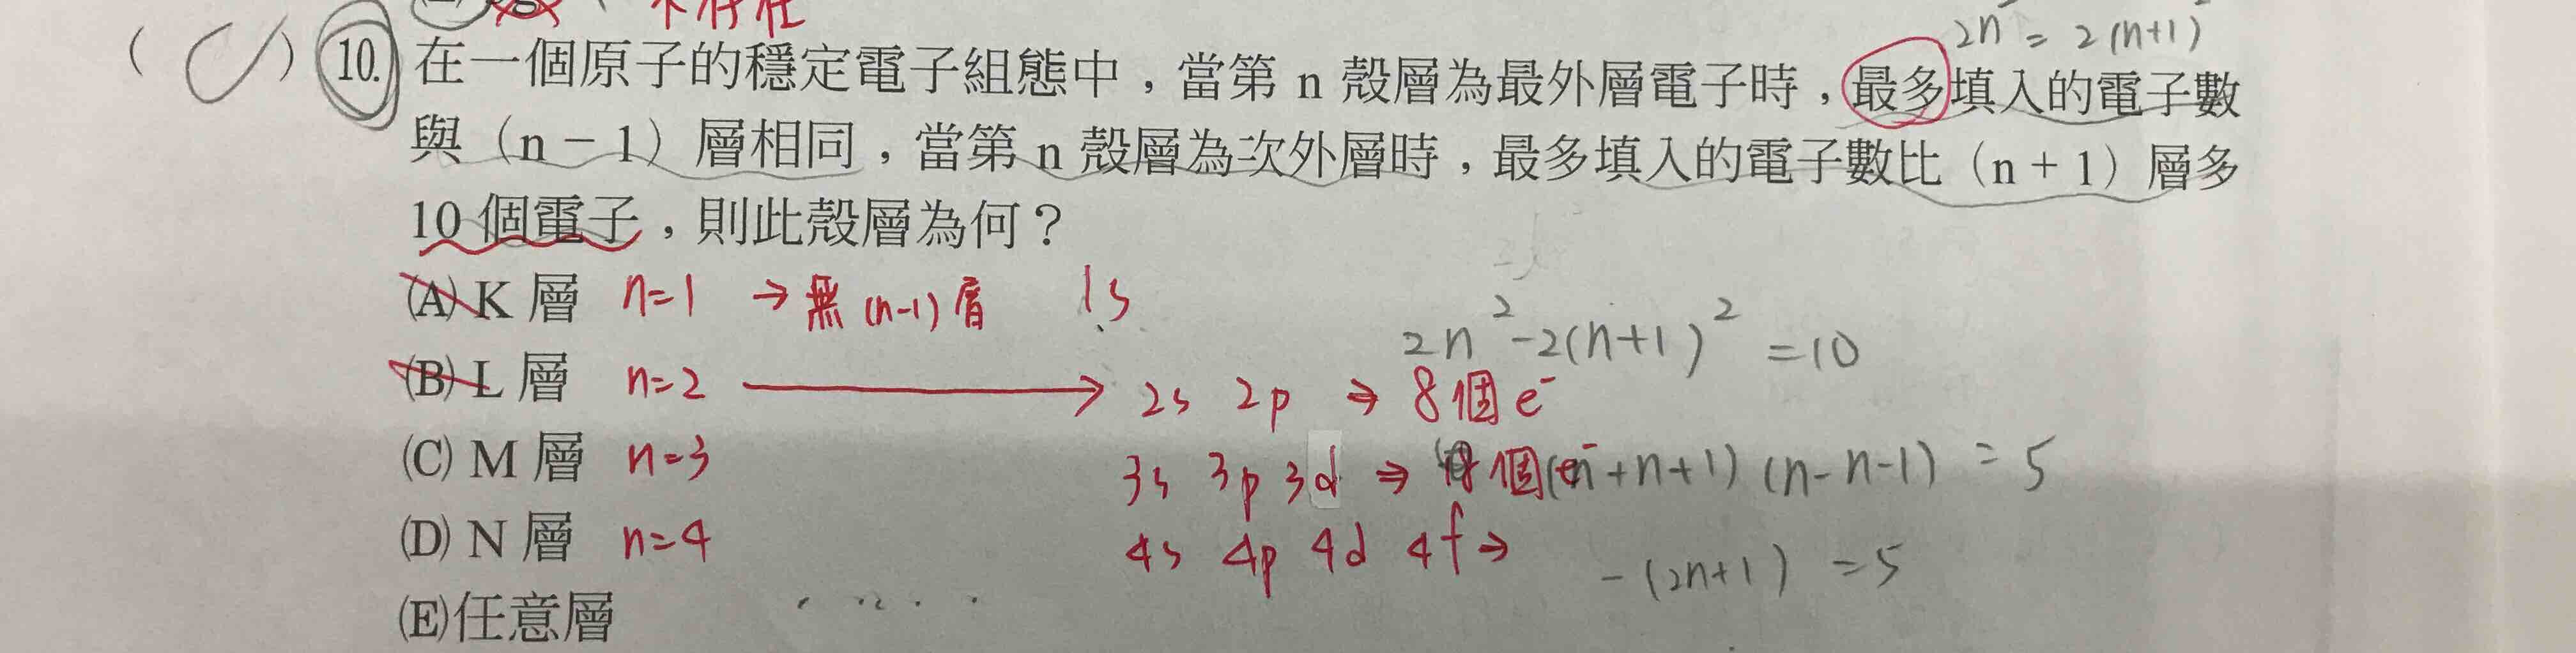 不存在
2n² = 2(n+1)²
( C ) 10. 在一個原子的穩定電子組態中，當第 n 殼層為最外層電子時，最多填入的電子數
與（n－1）層相同，當第 n 殼層為次外層時，最多填入的電子數比（n＋1）層多
10 個電子，則此殼層為何？
(A) K 層 n=1 → 無 (n-1) 層 1s
2n²-2(n+1)² =10
(B) L 層 n=2 → 2s 2p ⇒ 8個 e⁻
(C) M 層 n=3 3s 3p 3d ⇒ 18個e⁻ (n+n+1) (n-n-1) = 5
(D) N 層 n=4 4s 4p 4d 4f →
-(2n+1) =5
(E)任意層